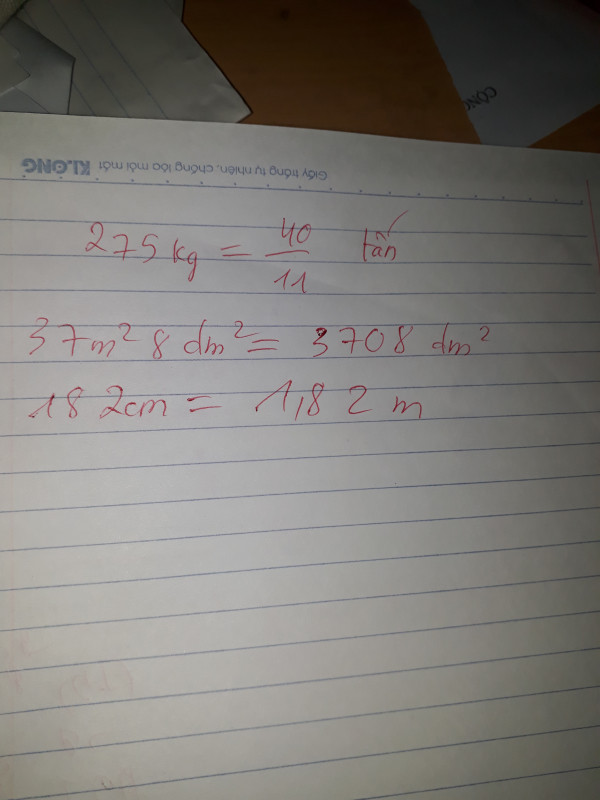 CÔNG
Giấy trắng tự nhiên, chống lóa mỏi mắt KLONG
275 kg = 40/11 tấn
37m² 8 dm² = 3708 dm²
182cm = 1,82 m